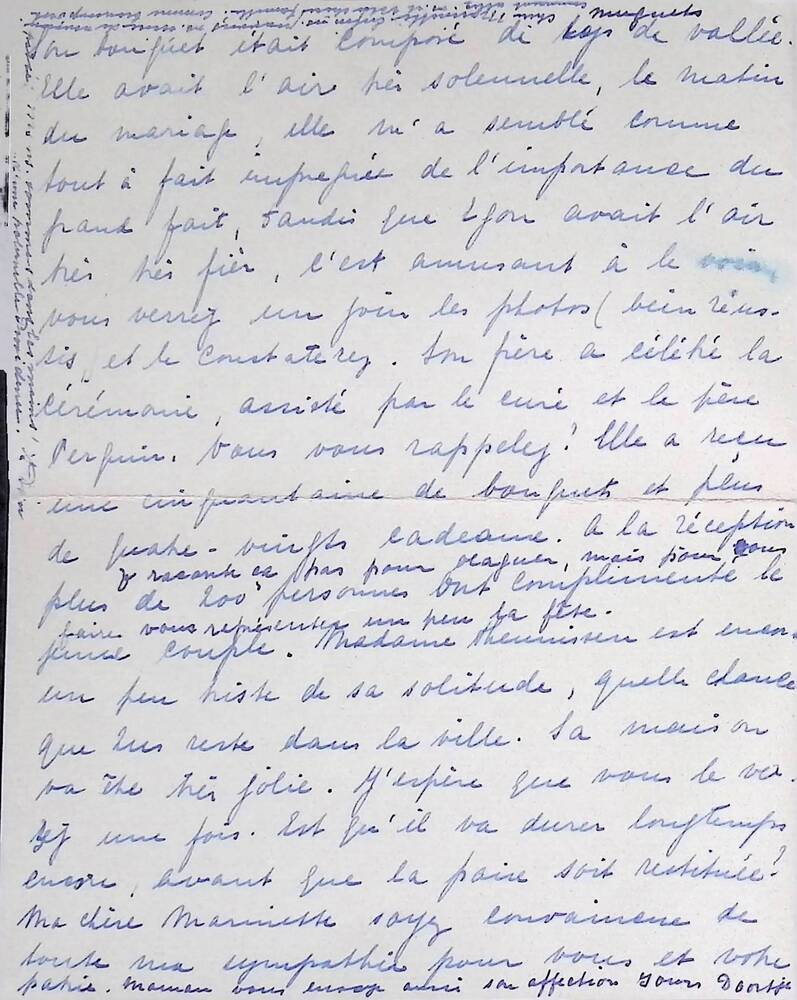 muguets
son bouquet était composé de lys de vallée.
Elle avait l'air très solennelle, le matin
du mariage, elle m'a semblé comme
tout à fait impregnée de l'importance du
grand fait, tandis que Egon avait l'air
très très fièr, c'est amusant à le voir,
vous verrez un jour les photos (bein réus-
sis, et le constaterez. Son frère a célébré la
cérémonie, assisté par le curé et le père
Perguin. Vous vous rappelez? Elle a reçu
une cinquantaine de bouquets et plus
de quatre-vingts cadeaux. A la réception
je raconte ça pas pour blaguer, mais pour vous
plus de 200 personnes ont complimenté le
faire vous représenter un peu la fête.
jeune couple. Madame Theunissen est encore
un peu triste de sa solitude, quelle chance
que Lus reste dans la ville. Sa maison
va être très jolie. J'espère que vous le ver-
rez une fois. Est qu'il va durer longtemps
encore, avant que la paix soit restituée?
Ma chère Marinette soyez convaincue de
toute ma sympathie pour vous et votre
patrie. Maman vous envoye aussi son affection Yours Doortje